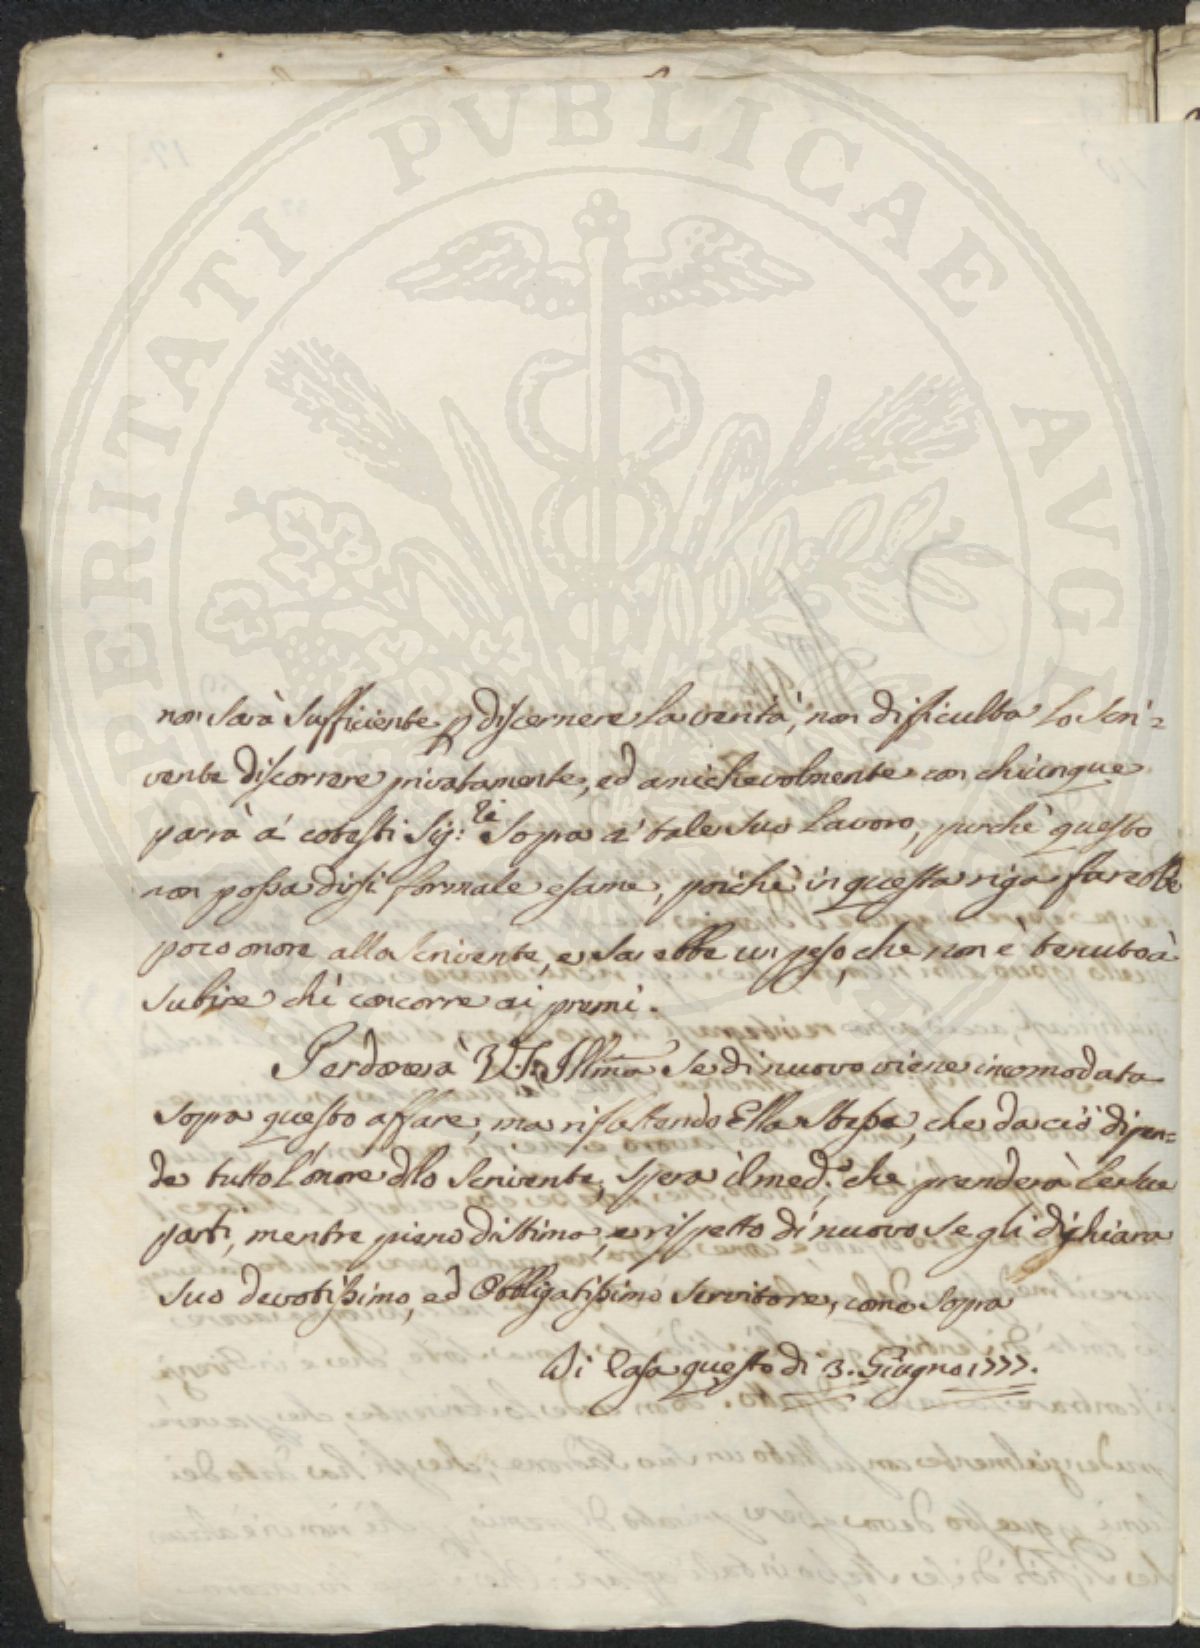 PROSPERITATI PVBLICAE AVGENDAE
non sarà sufficiente p discernere la verità, non difficulta lo scri=
vente discorrere privatamente, ed amichevolmente con chiunque
parrà a' cotesti Sig:ri sopra a' tale suo lavoro, purchè questo
non possa dirsi formale esame, poichè in questa riga farebbe
poco onore allo scrivente, e sarebbe un peso, che non è tenuto à
subire chi concorre ai premi.
Perdonerà V.S. Illma se di nuovo viene incomodata
sopra questo affare, ma riflettendo Ella stessa, che da ciò dipen=
de tutto l'onore dllo scrivente, spera il med:o che prenderà le sue
parti, mentre pieno di stima, e rispetto di nuovo se gli dichiara
suo devotissimo, ed Obbligatissimo servitore, come sopra
Di Casa questo di 3. Giugno 1777.